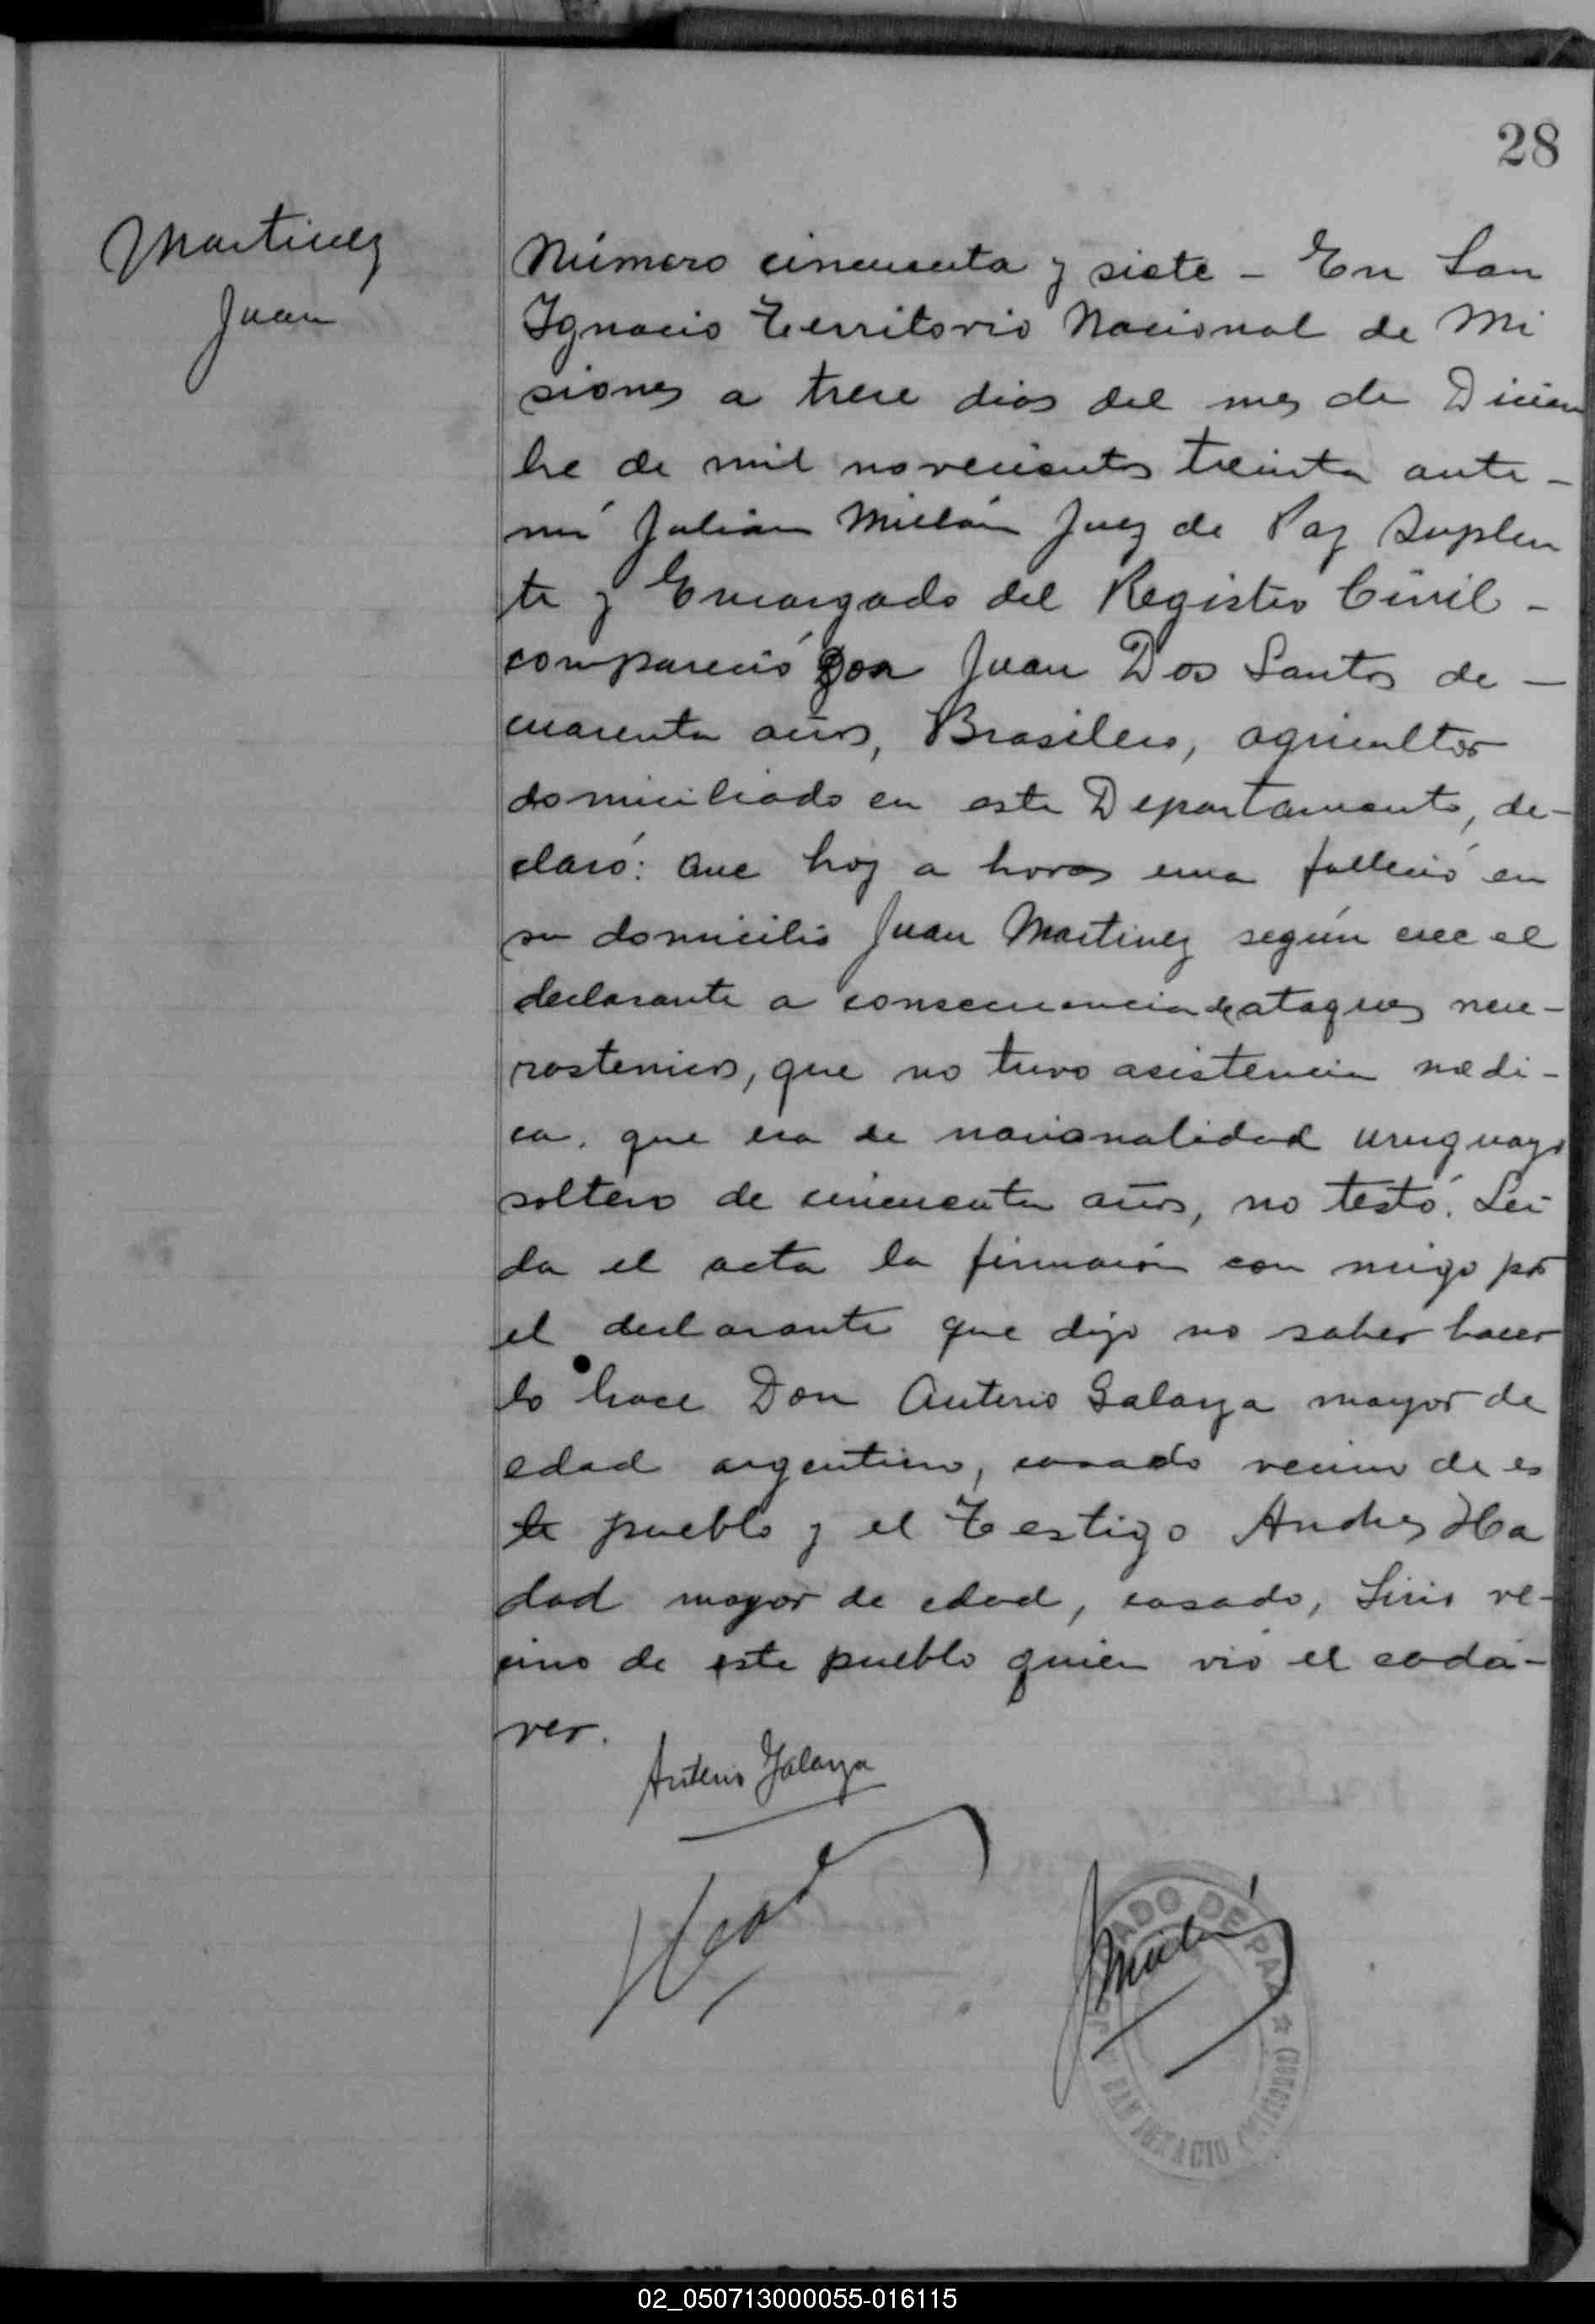 28
Martinez
Juan
Número cincuenta y siete - En San
Ignacio Territorio Nacional de Mi
siones a trece dias del mes de Diciem
bre de mil novecientos treinta ante -
mi Julián Millán Juez de Paz Suplen
te y Encargado del Registro Civil -
compareció Don Juan Dos Santos de -
cuarenta años, Brasilero, agricultor
domiciliado en este Departamento, de-
claró: Que hoy a horas una falleció en
su domicilio Juan Martinez según cree el
declarante a consecuencia de ataques neu-
rastenicos, que no tuvo asistencia medi-
ca. que era de nacionalidad uruguayo
soltero de cincuenta años, no testó. Lei
da el acta la firmaron con migo por
el declarante que dijo no saber hacer
lo hace Don Anterio Galarza mayor de
edad argentino, casado vecino de es
te pueblo y el Testigo Andres Ha
dad mayor de edad, casado, Sirio ve-
cino de este pueblo quien vió el cadá-
ver.
Anterio Galarza
JMillán
JUZGADO DE PAZ
SAN IGNACIO (Misiones)
02_050713000055-016115